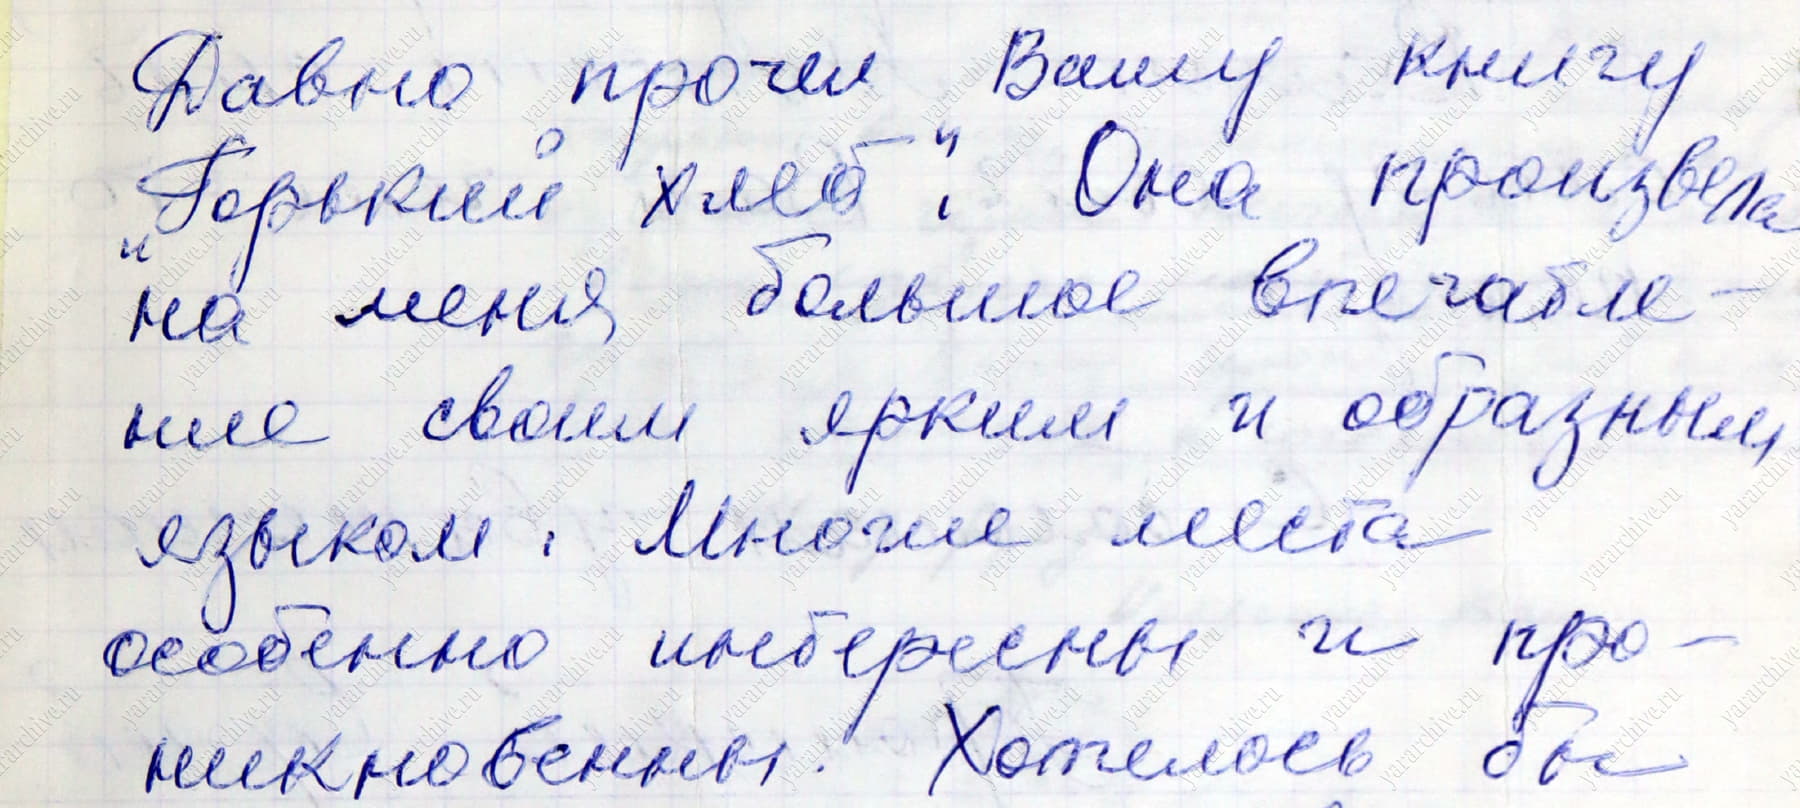 Давно прочел Вашу книгу
„Горький хлеб“. Она произвела
на меня большое впечатле-
ние своим ярким и образным
языком. Многие места
особенно интересны и про-
никновенны. Хотелось бы